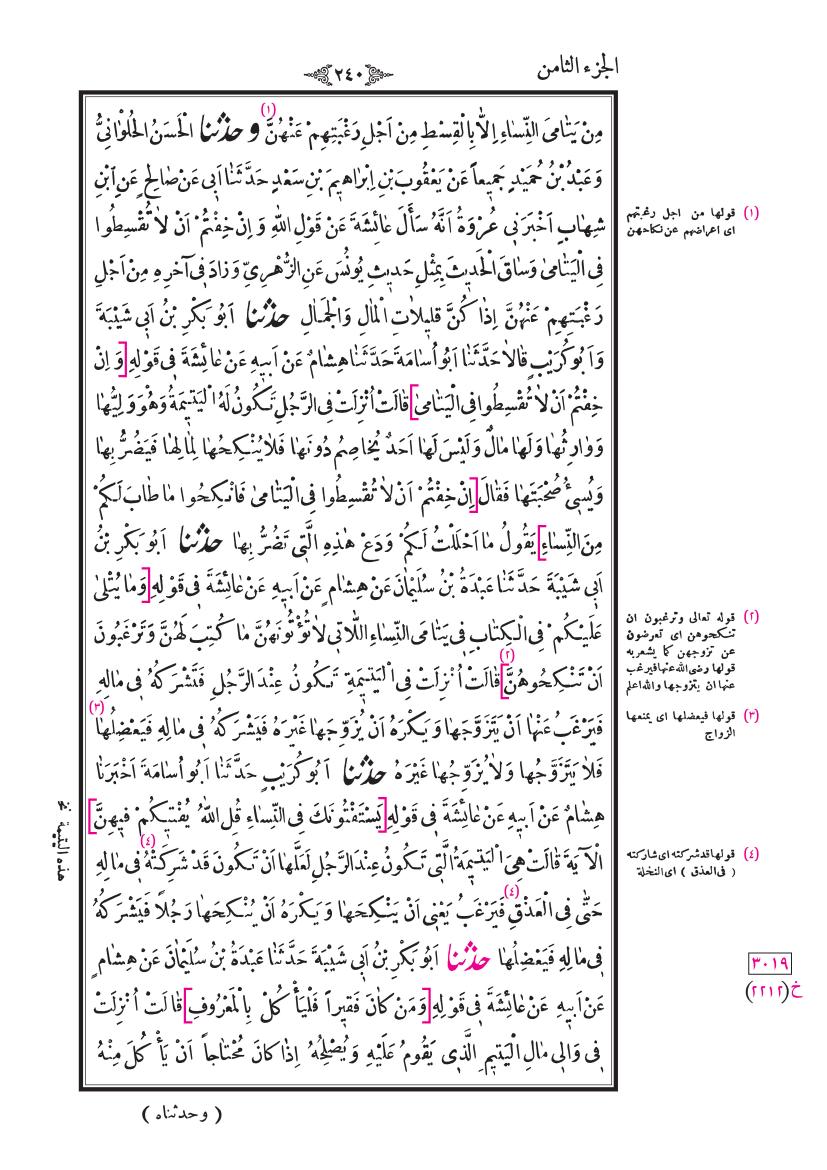 الجزء الثامن
٢٤٠
مِنْ يَتَامَى النِّسَاءِ اِلَّا بِالْقِسْطِ مِنْ اَجْلِ رَغْبَتِهِمْ عَنْهُنَّ (١) و حدثنا الْحَسَنُ الْحُلْوَانِىُّ
وَعَبْدُ بْنُ حُمَيْدٍ جَمِيعاً عَنْ يَعْقُوبَ بْنِ اِبْرَاهِيمَ بْنِ سَعْدٍ حَدَّثَنَا اَبِى عَنْ صَالِحٍ عَنِ ابْنِ
شِهَابٍ اَخْبَرَنِى عُرْوَةُ اَنَّهُ سَأَلَ عَائِشَةَ عَنْ قَوْلِ اللهِ وَاِنْ خِفْتُمْ اَنْ لَا تُقْسِطُوا
فِى الْيَتَامَى وَسَاقَ الْحَدِيثَ بِمِثْلِ حَدِيثِ يُونُسَ عَنِ الزُّهْرِىِّ وَزَادَ فِى آخِرِهِ مِنْ اَجْلِ
رَغْبَتِهِمْ عَنْهُنَّ اِذَا كُنَّ قَلِيلَاتِ الْمَالِ وَالْجَمَالِ حدثنا اَبُو بَكْرِ بْنُ اَبِى شَيْبَةَ
وَاَبُو كُرَيْبٍ قَالَا حَدَّثَنَا اَبُو اُسَامَةَ حَدَّثَنَا هِشَامٌ عَنْ اَبِيهِ عَنْ عَائِشَةَ فِى قَوْلِهِ [وَاِنْ
خِفْتُمْ اَنْ لَا تُقْسِطُوا فِى الْيَتَامَى] قَالَتْ اُنْزِلَتْ فِى الرَّجُلِ تَكُونُ لَهُ الْيَتِيمَةُ وَهُوَ وَلِيُّهَا
وَوَارِثُهَا وَلَهَا مَالٌ وَلَيْسَ لَهَا اَحَدٌ يُخَاصِمُ دُونَهَا فَلَا يُنْكِحُهَا لِمَالِهَا فَيَضُرُّ بِهَا
وَيُسِىءُ صُحْبَتَهَا فَقَالَ [اِنْ خِفْتُمْ اَنْ لَا تُقْسِطُوا فِى الْيَتَامَى فَانْكِحُوا مَا طَابَ لَكُمْ
مِنَ النِّسَاءِ] يَقُولُ مَا اَحْلَلْتُ لَكُمْ وَدَعْ هٰذِهِ الَّتِى تَضُرُّ بِهَا حدثنا اَبُو بَكْرِ بْنُ
اَبِى شَيْبَةَ حَدَّثَنَا عَبْدَةُ بْنُ سُلَيْمَانَ عَنْ هِشَامٍ عَنْ اَبِيهِ عَنْ عَائِشَةَ فِى قَوْلِهِ [وَمَا يُتْلَى
عَلَيْكُمْ فِى الْكِتَابِ فِى يَتَامَى النِّسَاءِ اللَّاتِى لَا تُؤْتُونَهُنَّ مَا كُتِبَ لَهُنَّ وَتَرْغَبُونَ
اَنْ تَنْكِحُوهُنَّ] (٢) قَالَتْ اُنْزِلَتْ فِى الْيَتِيمَةِ تَكُونُ عِنْدَ الرَّجُلِ فَتَشْرَكُهُ فِى مَالِهِ
فَيَرْغَبُ عَنْهَا اَنْ يَتَزَوَّجَهَا وَيَكْرَهُ اَنْ يُزَوِّجَهَا غَيْرَهُ فَيَشْرَكُهُ فِى مَالِهِ فَيَعْضِلُهَا (٣)
فَلَا يَتَزَوَّجُهَا وَلَا يُزَوِّجُهَا غَيْرَهُ حدثنا اَبُو كُرَيْبٍ حَدَّثَنَا اَبُو اُسَامَةَ اَخْبَرَنَا
هِشَامٌ عَنْ اَبِيهِ عَنْ عَائِشَةَ فِى قَوْلِهِ [يَسْتَفْتُونَكَ فِى النِّسَاءِ قُلِ اللهُ يُفْتِيكُمْ فِيهِنَّ]
الْآيَةَ قَالَتْ هِىَ الْيَتِيمَةُ الَّتِى تَكُونُ عِنْدَ الرَّجُلِ لَعَلَّهَا اَنْ تَكُونَ قَدْ شَرِكَتْهُ (٤) فِى مَالِهِ
حَتَّى فِى الْعَذْقِ (٤) فَيَرْغَبُ يَعْنِى اَنْ يَنْكِحَهَا وَيَكْرَهُ اَنْ يُنْكِحَهَا رَجُلًا فَيَشْرَكُهُ
فِى مَالِهِ فَيَعْضِلُهَا حدثنا اَبُو بَكْرِ بْنُ اَبِى شَيْبَةَ حَدَّثَنَا عَبْدَةُ بْنُ سُلَيْمَانَ عَنْ هِشَامٍ
عَنْ اَبِيهِ عَنْ عَائِشَةَ فِى قَوْلِهِ [وَمَنْ كَانَ فَقِيراً فَلْيَأْكُلْ بِالْمَعْرُوفِ] قَالَتْ اُنْزِلَتْ
فِى وَالِى مَالِ الْيَتِيمِ الَّذِى يَقُومُ عَلَيْهِ وَيُصْلِحُهُ اِذَا كَانَ مُحْتَاجاً اَنْ يَأْكُلَ مِنْهُ
(١) قولها من اجل رغبتهم
اى اعراضهم عن نكاحهن
(٢) قوله تعالى وترغبون ان
تنكحوهن اى تعرضون
عن تزوجهن كما يشعر به
قولها رضى الله عنها فيرغب
عنها ان يتزوجها والله اعلم
(٣) قولها فيعضلها اى يمنعها
الزواج
(٤) قولها قد شركته اى شاركته
( فى العذق ) اى النخلة
٣٠١٩
خ (٢٢١٢)
هذه اليتيمة نخ
( وحدثناه )